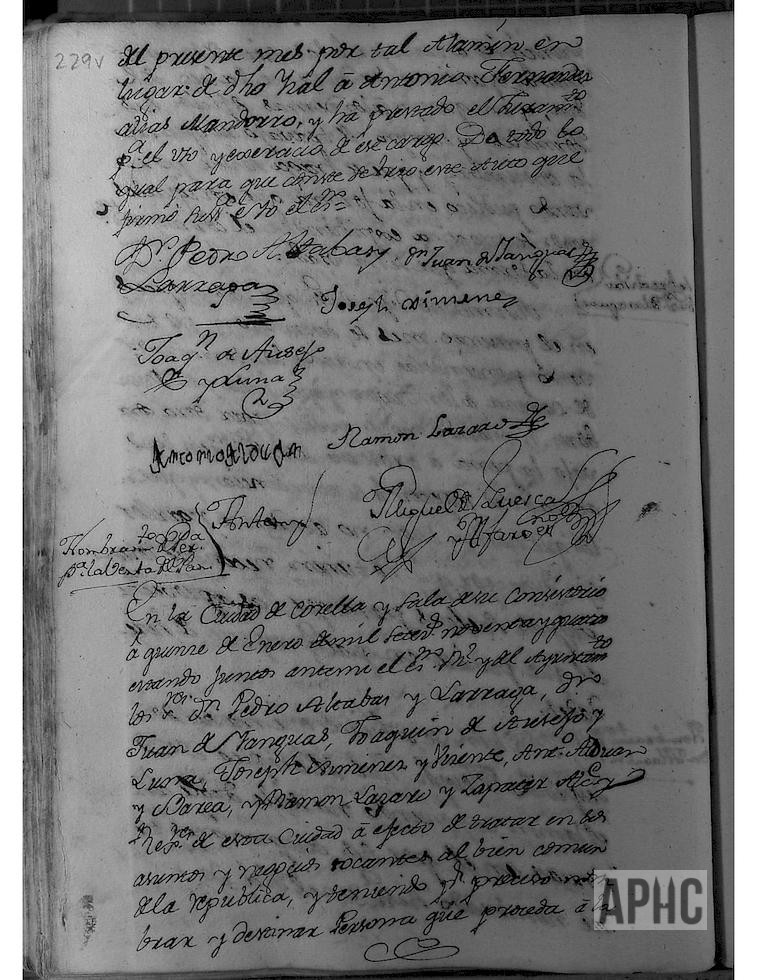 229v
del presente mes por tal Alamin en
lugar de dho Vial à Antonio Fernandez
alias Mandorro, y ha prestado el Juram.to
p.a el uso y exercicio de ese cargo. De todo lo
qual para que conste se hizo este Auto que
firmó su S.a e Yo el Ss.no
D.n Pedro A. Atabas y D.n Juan de Sanguas
Larraga
Joseph Ximenez
Joaq.n de Ausejo
y Luna
Ramon Lazaro
Antonio Alduan
Antemi
Miguel de Luesca
y Alfaro ess.no
Nombram.to de Per.da
p.a la Venta del Pan
En la Ciudad de Corella y Sala de su Consistorio
à quinze de Enero de mil setez.s noventa y quatro
estando juntos antemi el Ss.no R.l y del Ayuntam.to
los S.res D.n Pedro Atabas y Larraga, D.n
Juan de Sanguas, Joaquin de Ausejo y
Luna, Joseph Ximenez y Vicente, Ant.o Alduan
y Barea, y Ramon Lazaro y Zapater Alc.e y
Reg.res de esta Ciudad à efecto de tratar en los
asuntos y negocios tocantes al bien comun
de la republica, y teniendo p.r preciso nom
brar y destinar Persona que proceda à la
APHC